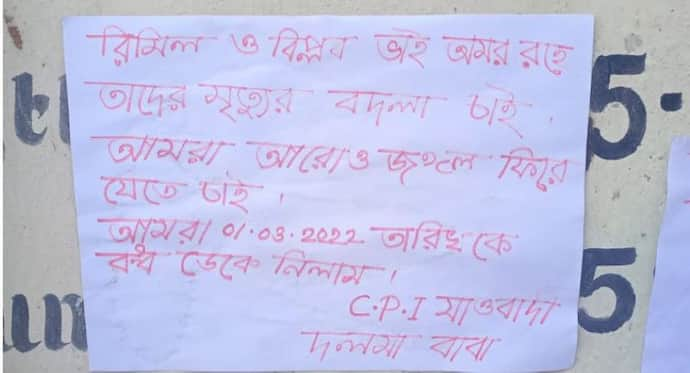 রিমিল ও বিপ্লব ভাই অমর রহে
তাদের মৃত্যুর বদলা চাই ।
আমরা আরোও জঙ্গলে ফিরে
যেতে চাই ।
আমরা 01.03.2022 তারিখ কে
বন্ধ ডেকে নিলাম ।
C.P.I মাওবাদী
দলমা বাবা
5.
5